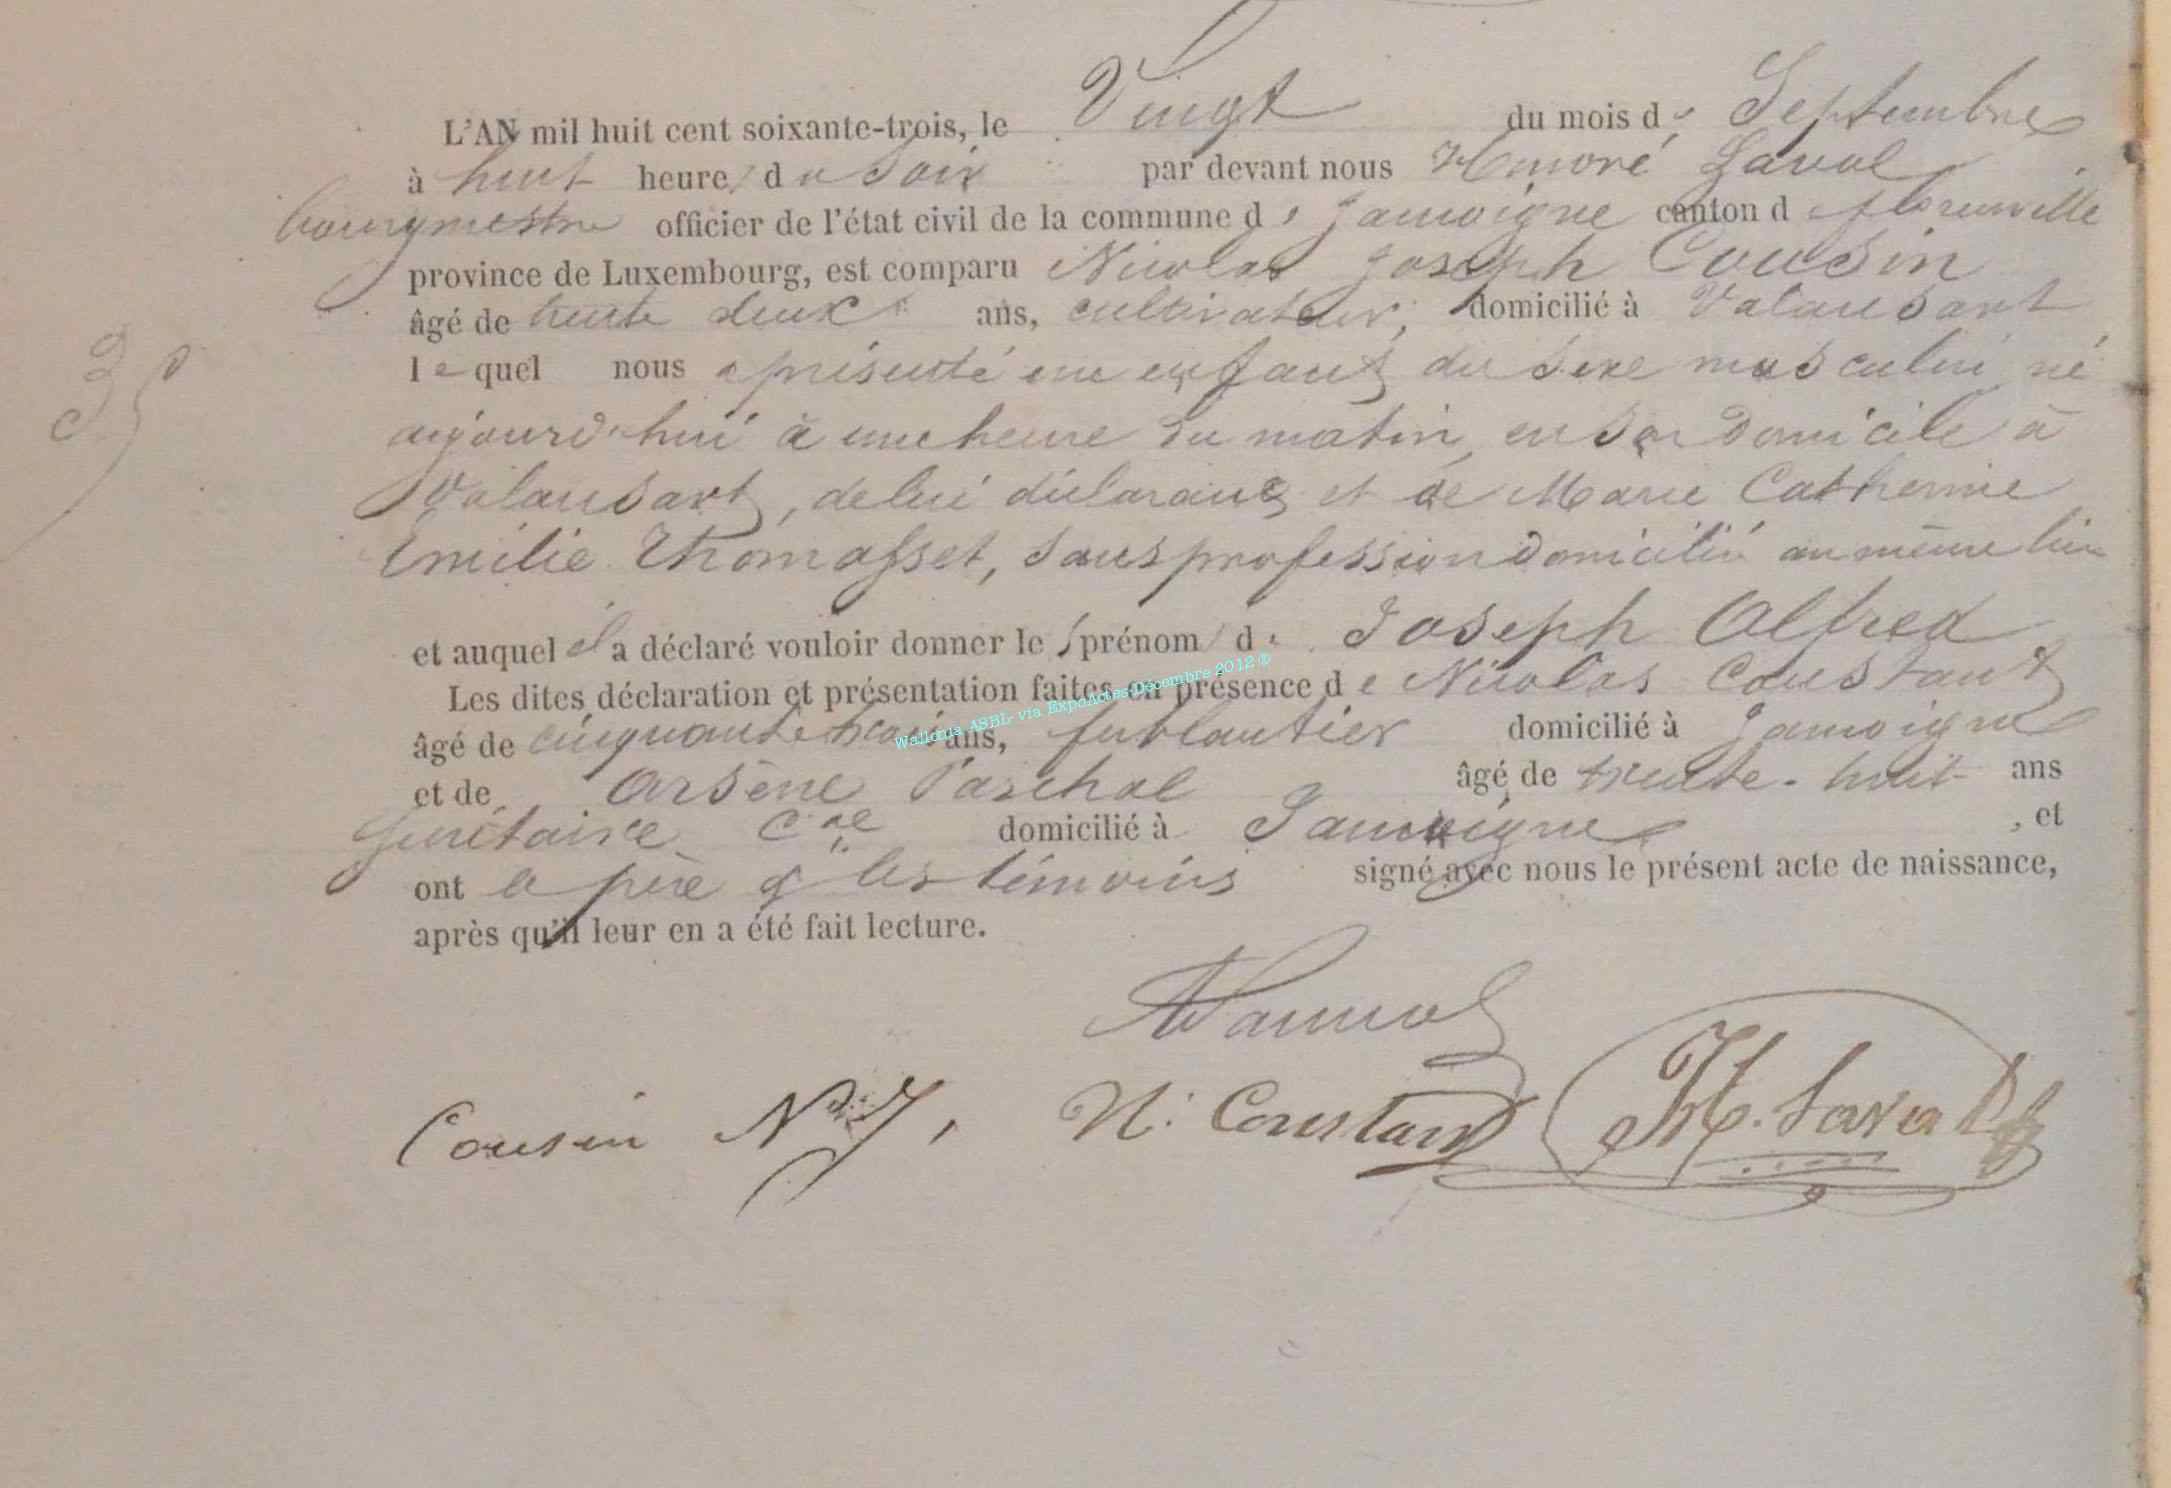 L'AN mil huit cent soixante-trois, le Vingt du mois de Septembre
à huit heures du soir par devant nous Honoré Laval
bourgmestre officier de l'état civil de la commune de Jamoigne canton de florenville
province de Luxembourg, est comparu Nicolas Joseph Cousin
âgé de trente deux ans, cultivateur, domicilié à Valansart
lequel nous a présenté un enfant du sexe masculin né
aujourd'hui à une heure du matin, en son domicile à
Valansart, de lui déclarant et de Marie Catherine
Emilie Thomasset, sans profession domicilié au même lieu
35
et auquel il a déclaré vouloir donner les prénoms de Joseph Alfred
Les dites déclaration et présentation faites en présence de Nicolas Constant
âgé de cinquante trois ans, ferblantier domicilié à Jamoigne
et de Arsène Paschal âgé de trente-huit ans
secrétaire Cal domicilié à Jamoigne, et
ont le père & les témoins signé avec nous le présent acte de naissance,
après qu'il leur en a été fait lecture.
Wallonia ASBL- via ExpoActes-Décembre 2012 ©
Cousin N J, N. Constant H. Laval